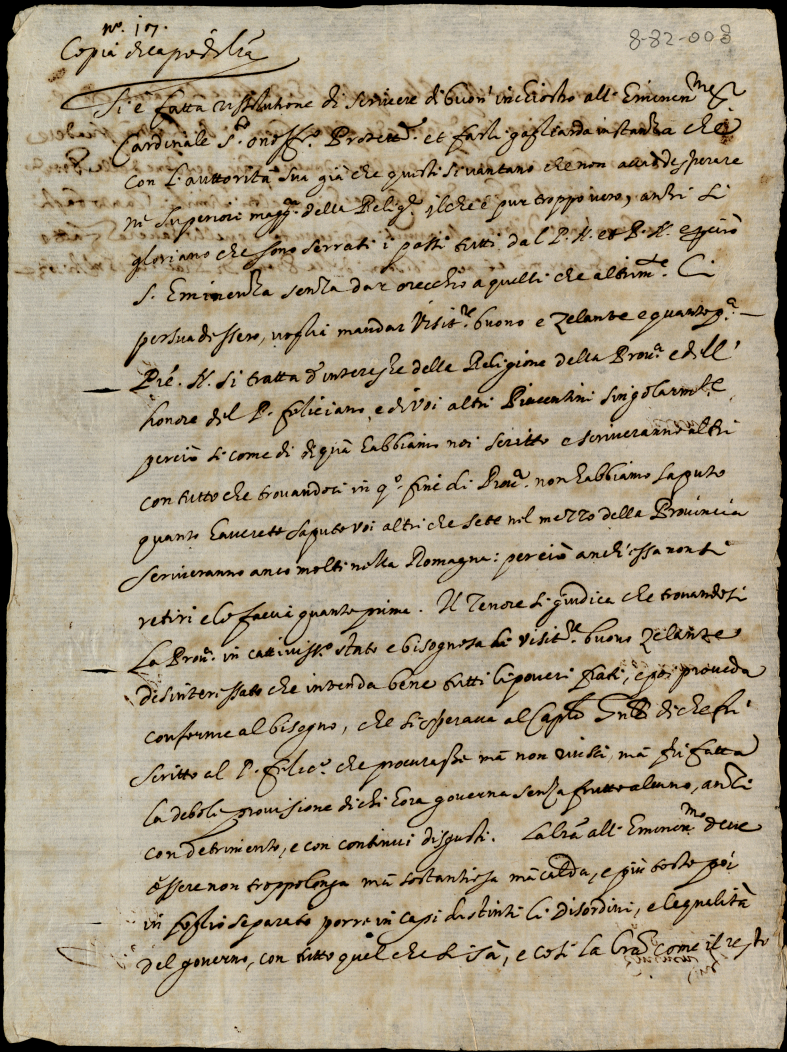 nº. 17.
8-82-003
Copia di capo di lrã
Si è fatta risolutione di scrivere di buon' inchiostro all' Eminenmo Sr
Cardinale S. Onoffo. Protettr. et farli gagliarda instanza che
con l'auttorità sua già che questi si vantano che non accade sperare
ne superiori maggri. della Religne. il che è pur troppo vero, anzi si
gloriano che sono serrati i passi tutti dal P. N. et P. N. e perciò
S. Eminenza senza dar orecchio a quelli che altrimte. li
persuadessero, voglia mandar Visitre. buono e zelante e quanto pa.
Prê. N. si tratta d'interesse della Religione della Prova. e dell'
honore del P. Feliciano, e di voi altri Piacentini singolarmte.
perciò si come di di quà habbiamo noi scritto e scriveranno altri
con tutto che trovandoci in qo. fine di Prova. non habbiamo saputo
quanto haverete saputo voi altri che sete nel mezzo della Provincia
scriveranno anco molti nella Romagna: perciò anch'essa non si
retiri e lo faccia quanto prima. Il Tenore si giudica che trovandosi
la Prova. in cattivisso. stato e bisognosa di visitre. buono zelante
disinteressato che intenda bene tutti li poveri frati, e poi proveda
conforme al bisogno, che si sperava al Caplo Gnle di che fu'
scritto al P. Felico. che procurasse mà non riuscì, mà fu fatta
la debole provisione di chi hora governa senza frutto alcuno, anzi
con detrimento, e con continui disgusti. La lrã all' Eminenmo deve
essere non troppo longa mà sostantiosa mà calda, e più tosto poi
in foglio separato porre in capi distinti li disordini, e le qualità
del governo, con tutto quel che si sà, e così la lrã come il resto